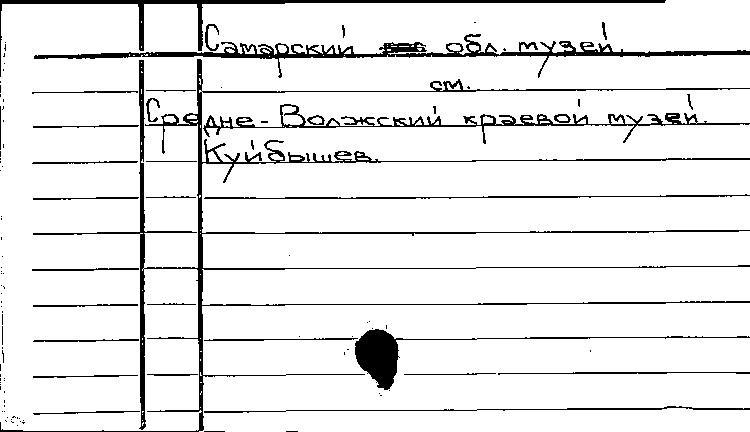 Самарский обл. музей.
см.
Средне-Волжский краевой музей.
Куйбышев.